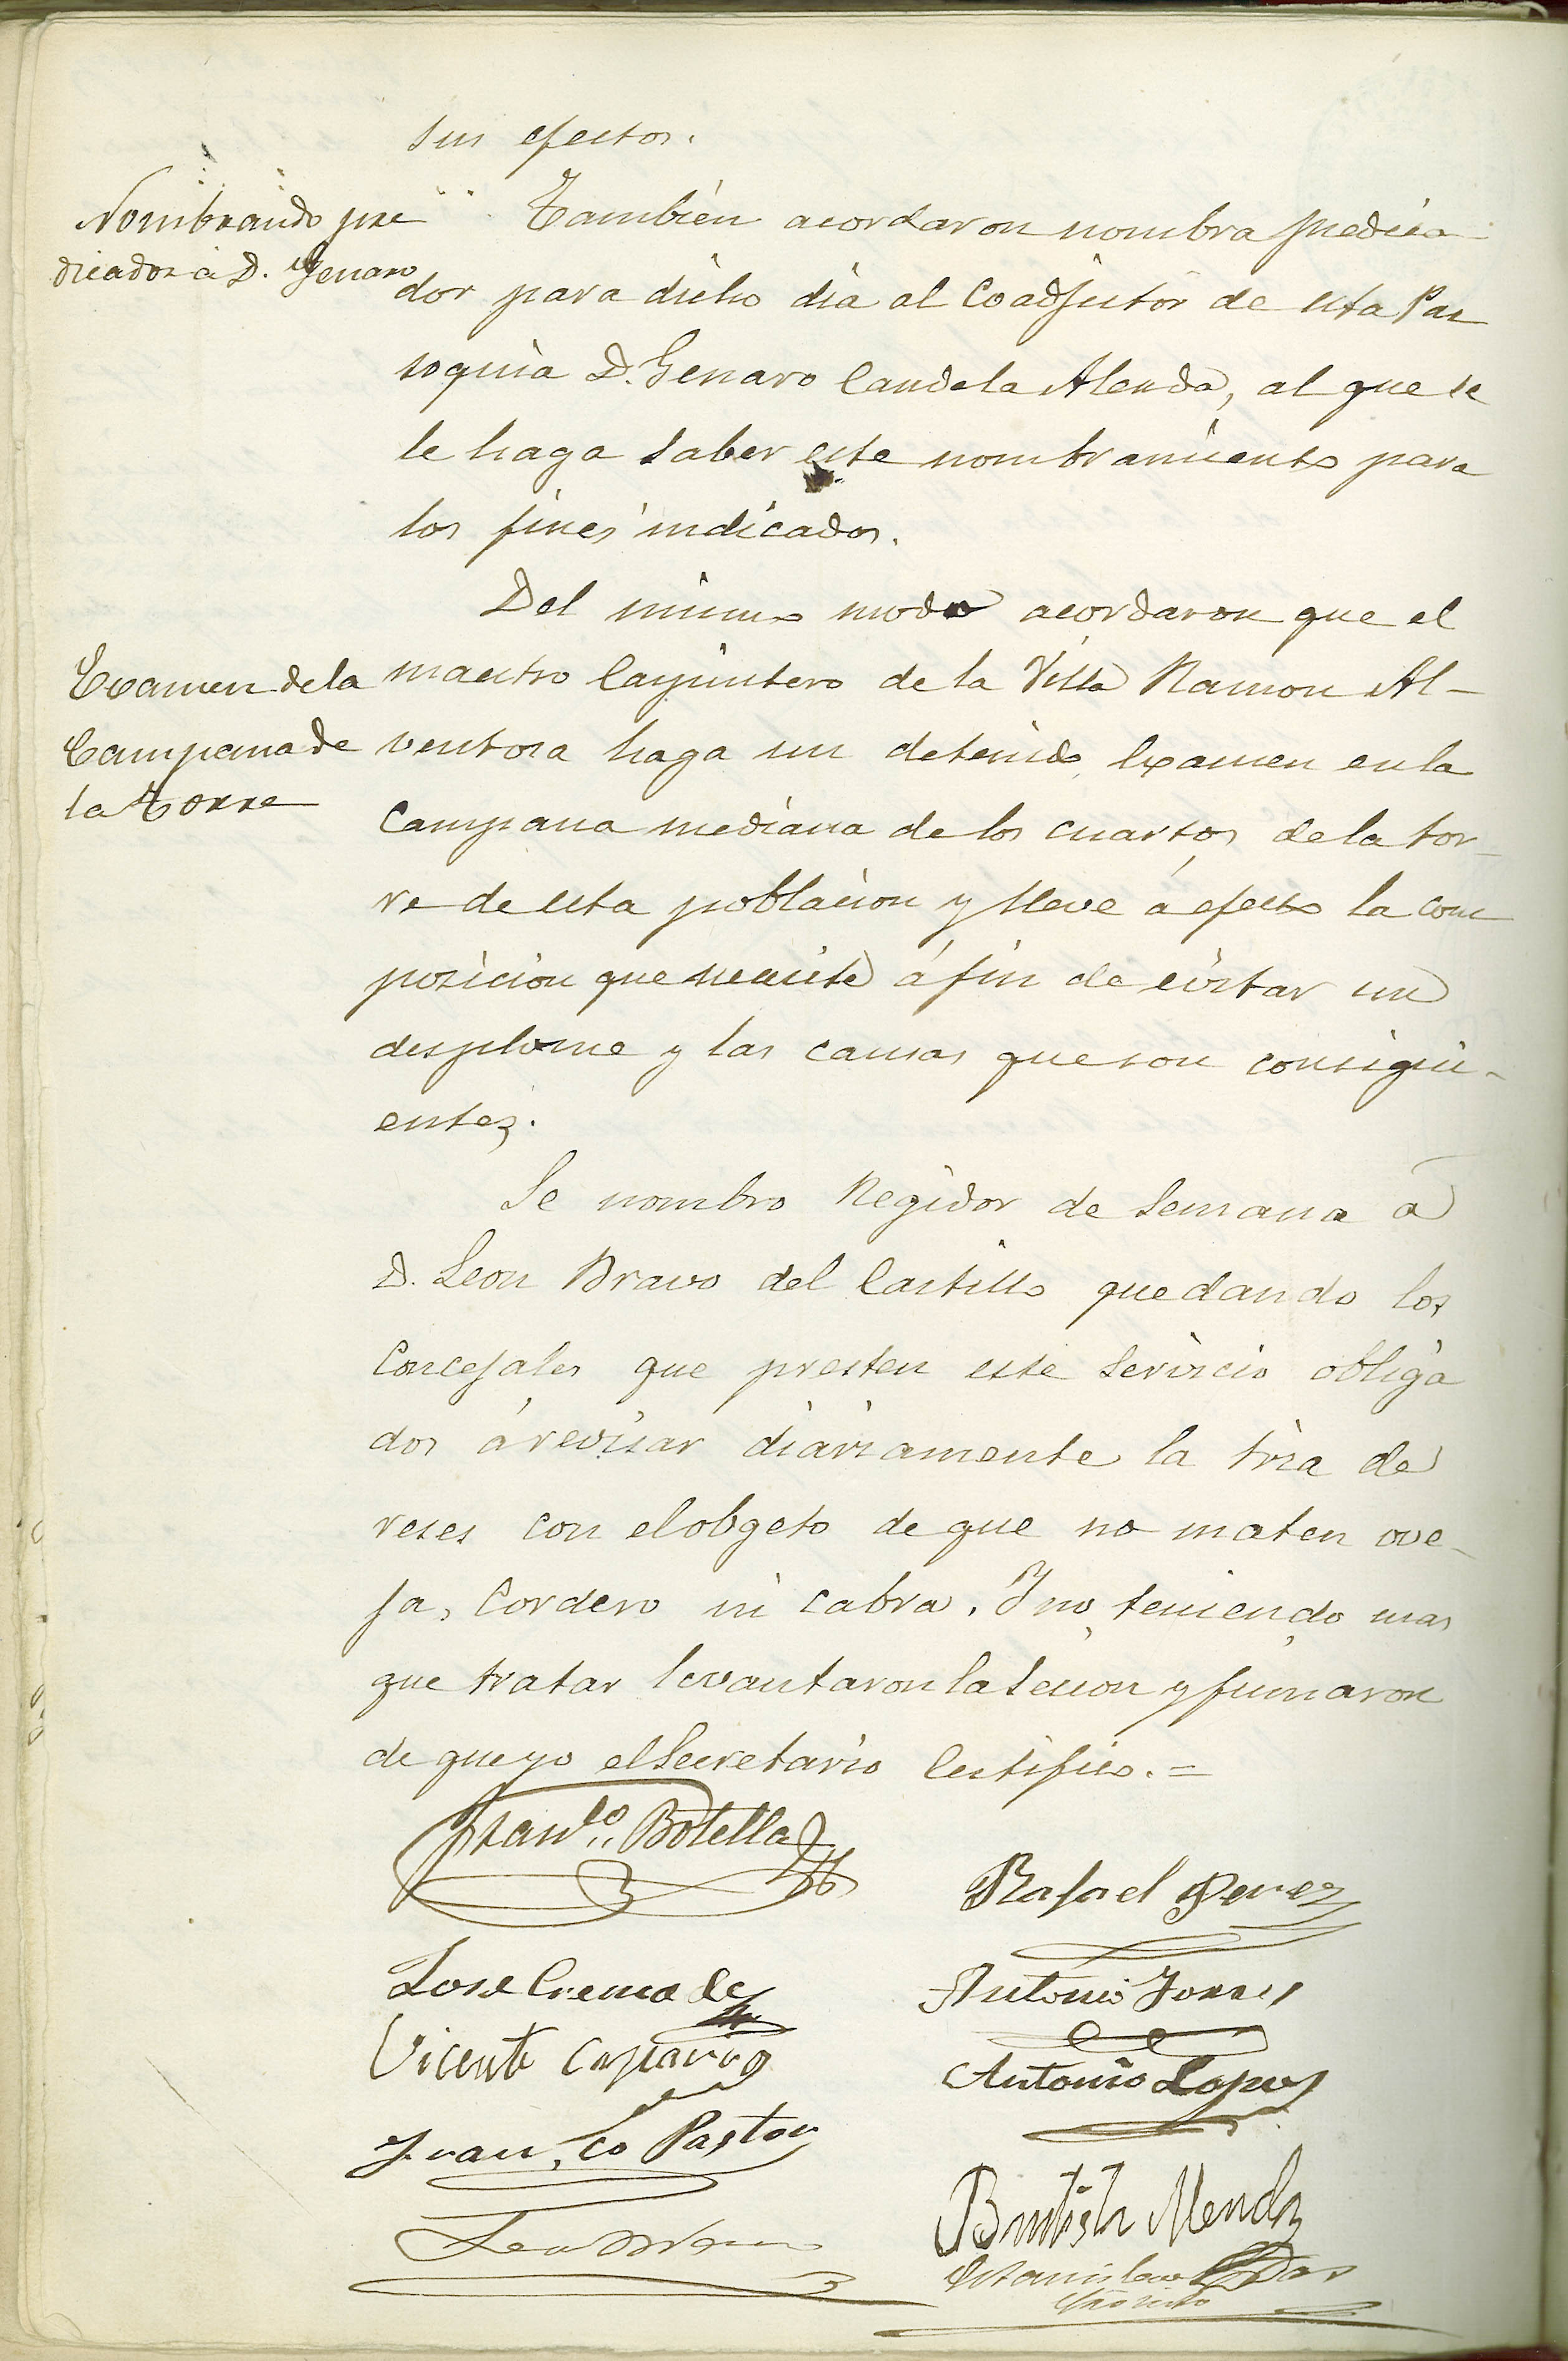 sus efectos.
Nombrando pre
dicador á D. Genaro
También acordaron nombra predica-
dor para dicho dia al Coadjutor de esta Par
roquia D. Genaro Candela Alenda, al que se
le haga saber este nombramiento para
los fines indicados.
Del mismo modo acordaron que el
Examen de la
Campana de
la Torre
maestro Carpintero de la Villa Ramon Al-
ventosa haga un detenido Examen en la
Campana mediana de los cuartos de la tor-
re de esta poblacion y lleve á efecto la com
posicion que necesite á fin de evitar un
desplome y las causas que son consigui-
entes.
Se nombro Regidor de Semana a
D. Leon Bravo del Castillo quedando los
Concejales que presten este Servicio obliga
dos á revisar diariamente la tria de
reses con el obgeto de que no maten ove-
ja, Cordero ni cabra. Y no teniendo mas
que tratar levantaron la Sesion y firmaron
de que yo el Secretario Certifico.=
Franco. Botella
Rafael Perez
Jose Cremades
Antonio Torres
Vicente Caparros
Antonio Lopez
Franco Pastor
Bautista Mendez
Leon Bravo
Estanislao